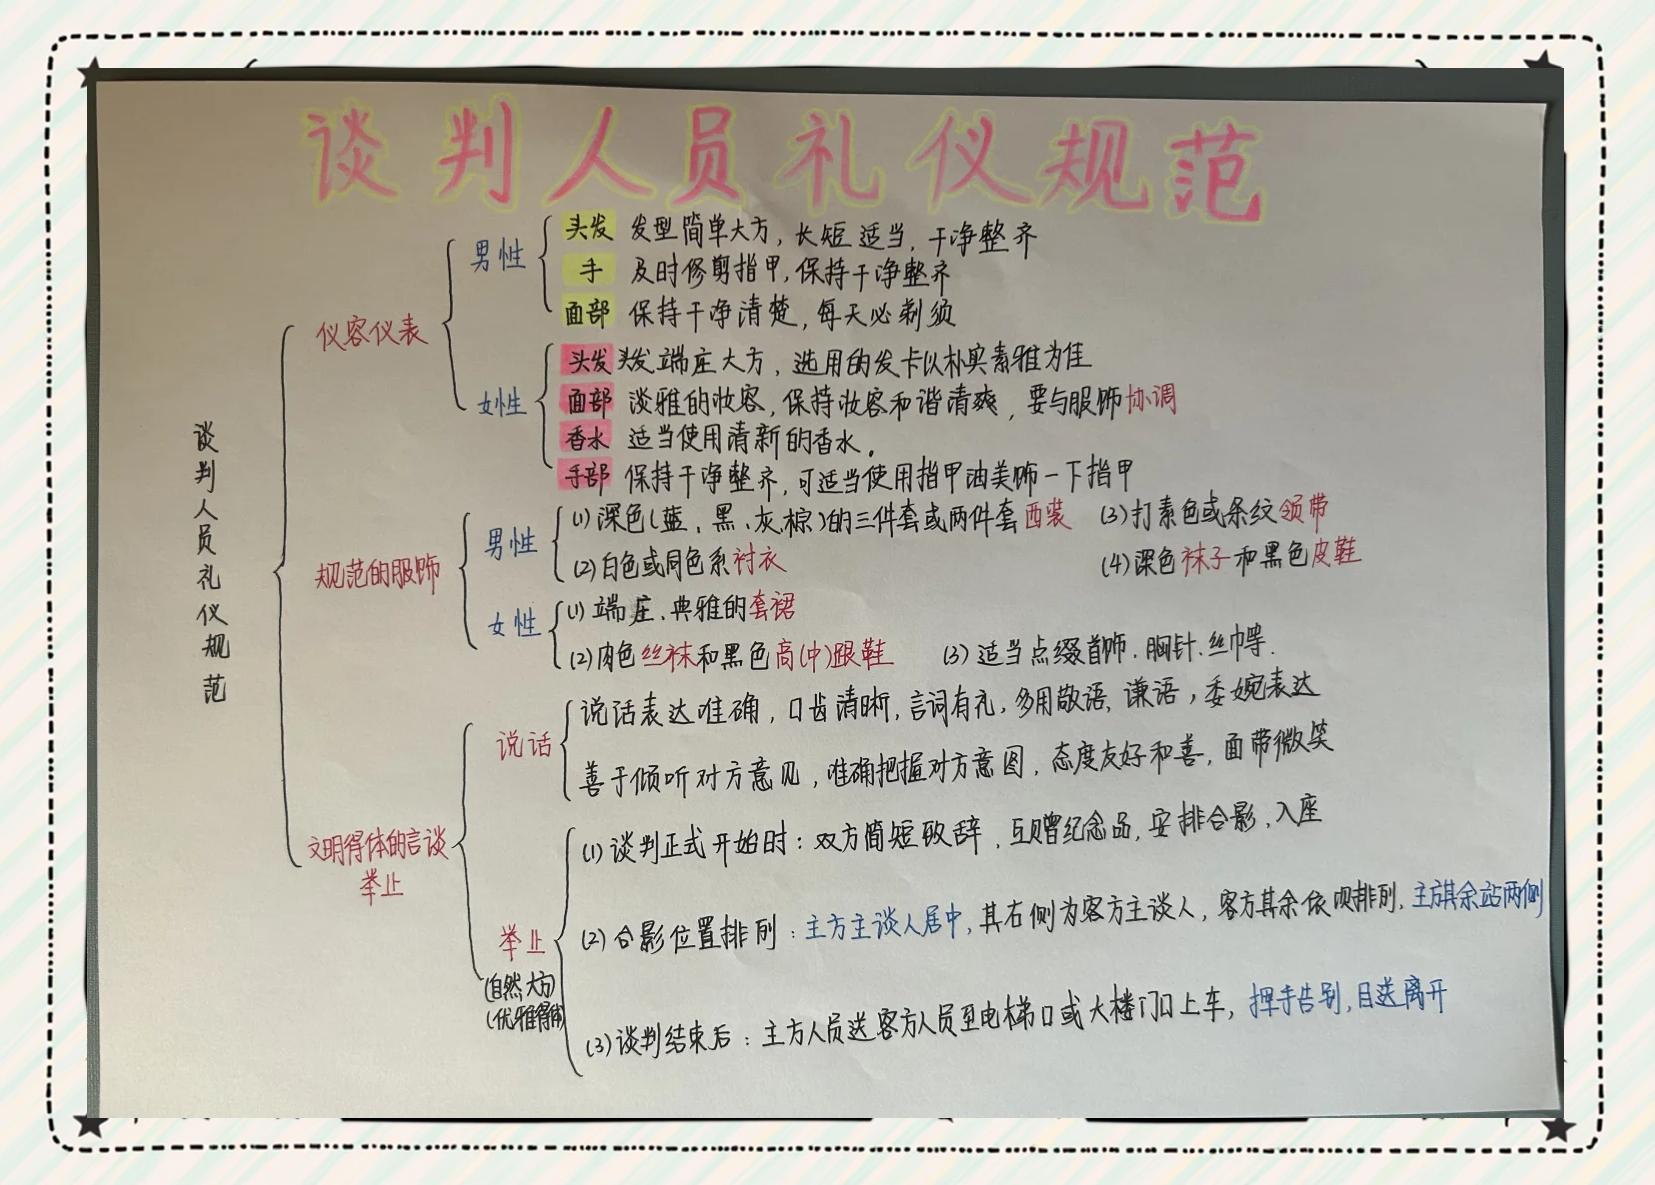 谈判人员礼仪规范
谈判人员礼仪规范
仪容仪表
男性
头发 发型简单大方，长短适当，干净整齐
手 及时修剪指甲，保持干净整齐
面部 保持干净清楚，每天必剃须
女性
头发 头发端庄大方，选用的发卡以朴实素雅为佳
面部 淡雅的妆容，保持妆容和谐清爽，要与服饰协调
香水 适当使用清新的香水。
手部 保持干净整齐，可适当使用指甲油美饰一下指甲
规范的服饰
男性
(1)深色(蓝、黑、灰、棕)的三件套或两件套西装 (3)打素色或条纹领带
(2)白色或同色系衬衣 (4)深色袜子和黑色皮鞋
女性
(1)端庄、典雅的套裙
(2)肉色丝袜和黑色高(中)跟鞋 (3)适当点缀首饰、胸针、丝巾等.
文明得体的言谈
举止
说话
说话表达准确，口齿清晰，言词有礼，多用敬语、谦语，委婉表达
善于倾听对方意见，准确把握对方意图，态度友好和善，面带微笑
举止
(自然大方)
(优雅得体)
(1)谈判正式开始时：双方简短致辞，互赠纪念品，安排合影、入座
(2)合影位置排列：主方主谈人居中，其右侧为客方主谈人，客方其余依顺排列，主方其余站两侧
(3)谈判结束后：主方人员送客方人员至电梯口或大楼门口上车，挥手告别，目送离开